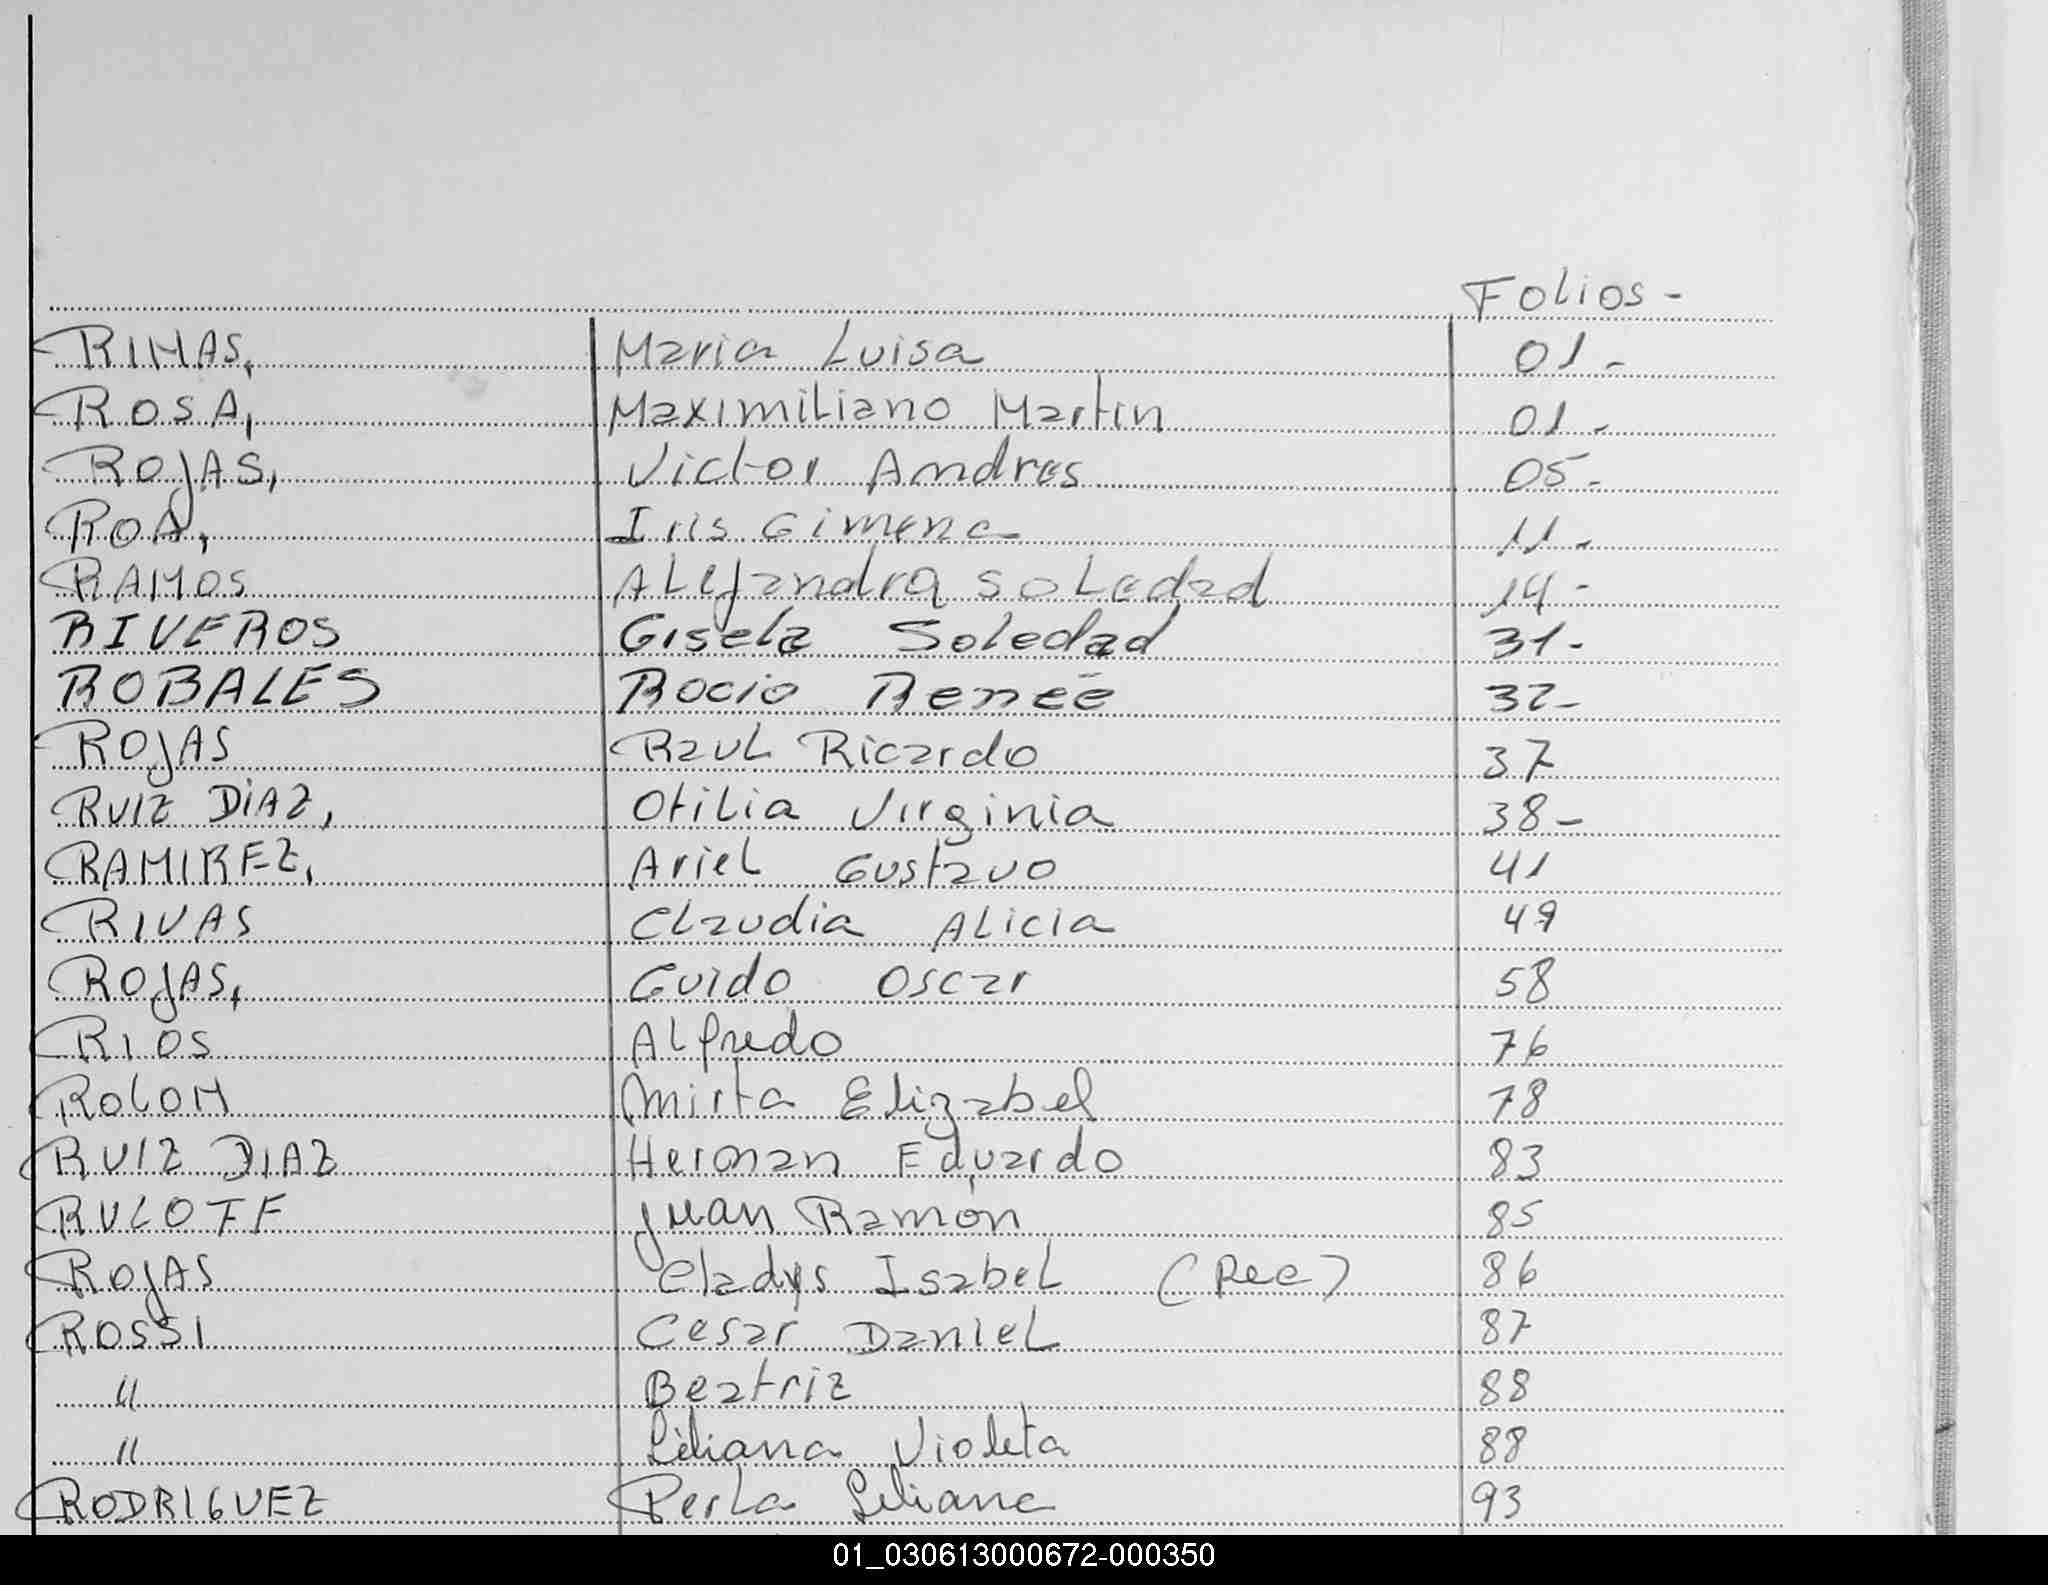 Folios -
RIMAS, Maria Luisa 01 -
ROSA, Maximiliano Martin 01 -
ROJAS, Victor Andres 05 -
ROA, Iris Gimena 11 -
RAMOS Alejandra Soledad 14 -
RIVEROS Gisela Soledad 31 -
ROBALES Rocio Reneé 32 -
ROJAS Raul Ricardo 37
RUIZ DiAZ, Otilia Virginia 38 -
RAMIREZ, Ariel Gustavo 41
RIVAS Claudia Alicia 49
ROJAS, Guido Oscar 58
RIOS Alfredo 76
ROLON Mirta Elizabel 78
RUIZ DIAZ Hernan Eduardo 83
RULOFF Juan Ramón 85
ROJAS Gladys Isabel (Rec) 86
ROSSI Cesar Daniel 87
" Beatriz 88
" Liliana Violeta 88
RODRIGUEZ Perla Liliana 93
01_030613000672-000350